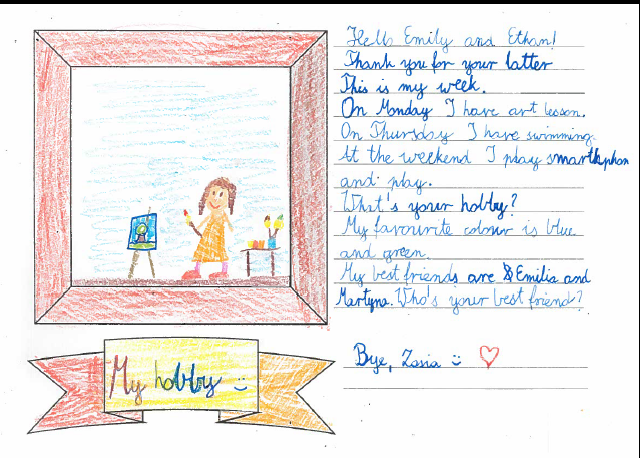 Hello Emily and Ethan!
Thank you for your latter
This is my week.
On Monday I have art lesson.
On Thursday I have swimming.
At the weekend I play smarthphon
and play.
What's your hobby?
My favourite colour is blue
and green.
My best friends are Emilia and
Martyna. Who's your best friend?
Bye, Zosia :)
My hobby :)